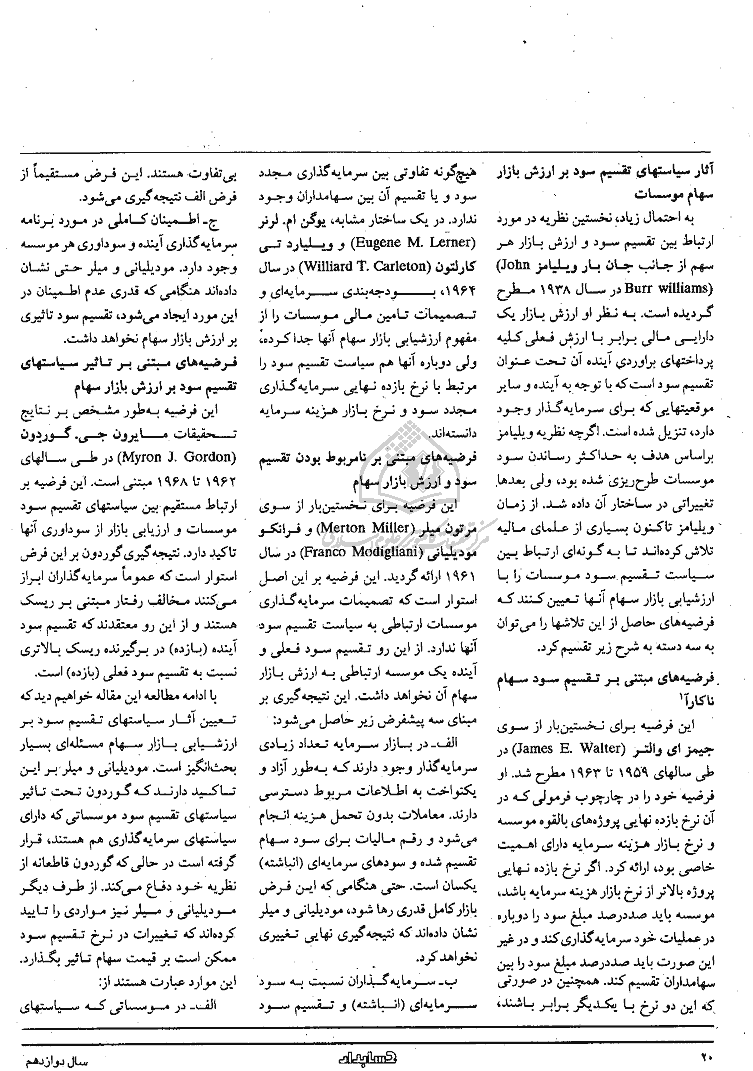 آثار سیاستهای تقسیم سود بر ارزش بازار
سهام موسسات
به احتمال زیاد، نخستین نظریه در مورد
ارتباط بین تقسیم سود و ارزش بازار هر
سهم از جانب جان بار ویلیامز (John
Burr williams) در سال ۱۹۳۸ مطرح
گردیده است. به نظر او ارزش بازار یک
دارایی مالی برابر با ارزش فعلی کلیه
پرداختهای براوردی آینده آن تحت عنوان
تقسیم سود است که با توجه به آینده و سایر
موقعیتهایی که برای سرمایه‌گذار وجود
دارد، تنزیل شده است. اگرچه نظریه ویلیامز
براساس هدف به حداکثر رساندن سود
موسسات طرح‌ریزی شده بود، ولی بعدها
تغییراتی در ساختار آن داده شد. از زمان
ویلیامز تاکنون بسیاری از علمای مالیه
تلاش کرده‌اند تا به گونه‌ای ارتباط بین
سیاست تقسیم سود موسسات را با
ارزشیابی بازار سهام آنها تعیین کنند که
فرضیه‌های حاصل از این تلاشها را می‌توان
به سه دسته به شرح زیر تقسیم کرد.
فرضیه‌های مبتنی بر تقسیم سود سهام
ناکارآ۱
این فرضیه برای نخستین‌بار از سوی
جیمز ای والتر (James E. Walter) در
طی سالهای ۱۹۵۹ تا ۱۹۶۳ مطرح شد. او
فرضیه خود را در چارچوب فرمولی که در
آن نرخ بازده نهایی پروژه‌های بالقوه موسسه
و نرخ بازار هزینه سرمایه دارای اهمیت
خاصی بود، ارائه کرد. اگر نرخ بازده نهایی
پروژه بالاتر از نرخ بازار هزینه سرمایه باشد،
موسسه باید صددرصد مبلغ سود را دوباره
در عملیات خود سرمایه‌گذاری کند و در غیر
این صورت باید صددرصد مبلغ سود را بین
سهامداران تقسیم کند. همچنین در صورتی
که این دو نرخ با یکدیگر برابر باشند،
هیچ‌گونه تفاوتی بین سرمایه‌گذاری مجدد
سود و یا تقسیم آن بین سهامداران وجود
ندارد. در یک ساختار مشابه، یوگن ام. لرنر
(Eugene M. Lerner) و ویلیارد تی
کارلتون (Williard T. Carleton) در سال
۱۹۶۴، بودجه‌بندی سرمایه‌ای و
تصمیمات تامین مالی موسسات را از
مفهوم ارزشیابی بازار سهام آنها جدا کرده،
ولی دوباره آنها هم سیاست تقسیم سود را
مرتبط با نرخ بازده نهایی سرمایه‌گذاری
مجدد سود و نرخ بازار هزینه سرمایه
دانسته‌اند.
فرضیه‌های مبتنی بر نامربوط بودن تقسیم
سود و ارزش بازار سهام
این فرضیه برای نخستین‌بار از سوی
مرتون میلر (Merton Miller) و فرانکو
مودیلیانی (Franco Modigliani) در سال
۱۹۶۱ ارائه گردید. این فرضیه بر این اصل
استوار است که تصمیمات سرمایه‌گذاری
موسسات ارتباطی به سیاست تقسیم سود
آنها ندارد. از این رو تقسیم سود فعلی و
آینده یک موسسه ارتباطی به ارزش بازار
سهام آن نخواهد داشت. این نتیجه‌گیری بر
مبنای سه پیشفرض زیر حاصل می‌شود:
الف‌ـ در بازار سرمایه تعداد زیادی
سرمایه‌گذار وجود دارند که به‌طور آزاد و
یکنواخت به اطلاعات مربوط دسترسی
دارند. معاملات بدون تحمل هزینه انجام
می‌شود و رقم مالیات برای سود سهام
تقسیم شده و سودهای سرمایه‌ای (انباشته)
یکسان است. حتی هنگامی که این فرض
بازار کامل قدری رها شود، مودیلیانی و میلر
نشان داده‌اند که نتیجه‌گیری نهایی تغییری
نخواهد کرد.
ب‌ـ سرمایه‌گذاران نسبت به سود
سرمایه‌ای (انباشته) و تقسیم سود
بی‌تفاوت هستند. این فرض مستقیماً از
فرض الف نتیجه‌گیری می‌شود.
ج‌ـ اطمینان کاملی در مورد برنامه
سرمایه‌گذاری آینده و سوداوری هر موسسه
وجود دارد. مودیلیانی و میلر حتی نشان
داده‌اند هنگامی که قدری عدم اطمینان در
این مورد ایجاد می‌شود، تقسیم سود تاثیری
بر ارزش بازار سهام نخواهد داشت.
فرضیه‌های مبتنی بر تاثیر سیاستهای
تقسیم سود بر ارزش بازار سهام
این فرضیه به‌طور مشخص بر نتایج
تحقیقات مایرون جی. گوردون
(Myron J. Gordon) در طی سالهای
۱۹۶۲ تا ۱۹۶۸ مبتنی است. این فرضیه بر
ارتباط مستقیم بین سیاستهای تقسیم سود
موسسات و ارزیابی بازار از سوداوری آنها
تاکید دارد. نتیجه‌گیری گوردون بر این فرض
استوار است که عموماً سرمایه‌گذاران ابراز
می‌کنند مخالف رفتار مبتنی بر ریسک
هستند و از این رو معتقدند که تقسیم سود
آینده (بازده) در برگیرنده ریسک بالاتری
نسبت به تقسیم سود فعلی (بازده) است.
با ادامه مطالعه این مقاله خواهیم دید که
تعیین آثار سیاستهای تقسیم سود بر
ارزشیابی بازار سهام مسئله‌ای بسیار
بحث‌انگیز است. مودیلیانی و میلر بر این
تاکید دارند که گوردون تحت تاثیر
سیاستهای تقسیم سود موسساتی که دارای
سیاستهای سرمایه‌گذاری هم هستند، قرار
گرفته است در حالی که گوردون قاطعانه از
نظریه خود دفاع می‌کند. از طرف دیگر
مودیلیانی و میلر نیز مواردی را تایید
کرده‌اند که تغییرات در نرخ تقسیم سود
ممکن است بر قیمت سهام تاثیر بگذارد.
این موارد عبارت هستند از:
الف‌ـ در موسساتی که سیاستهای
۲۰
حسابدار
سال دوازدهم